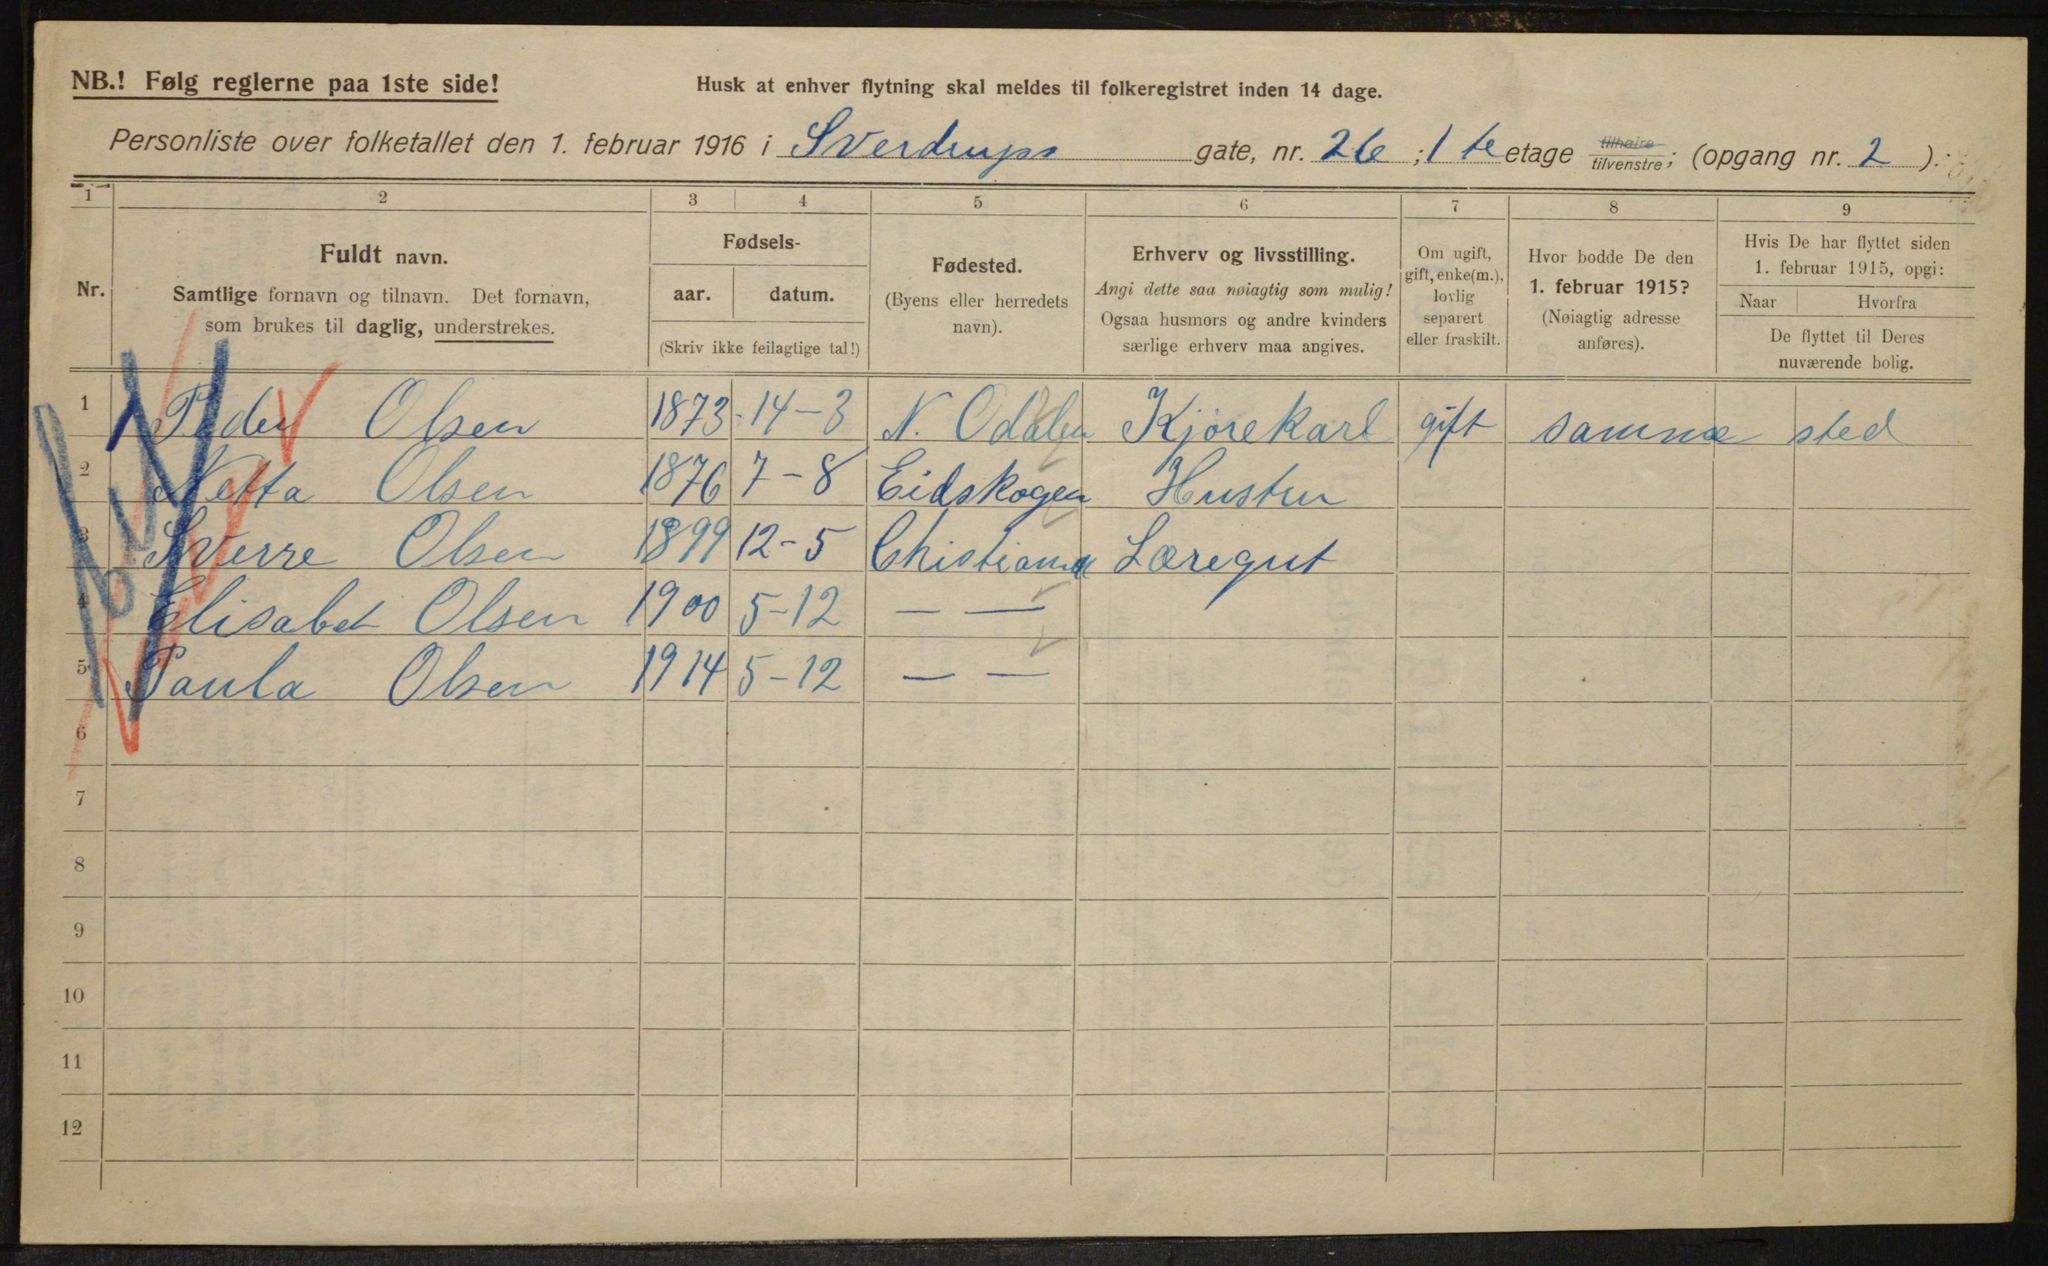 NB.! Følg reglerne paa 1ste side!
Husk at enhver flytning skal meldes til folkeregistret inden 14 dage.
Personliste over folketallet den 1. februar 1916 i Sverdrups gate, nr. 26 ; 1 te etage tilhøire tilvenstre; (opgang nr. 2 ):
1 2 3 4 5 6 7 8 9
Nr.
Fuldt navn.
Samtlige fornavn og tilnavn. Det fornavn,
som brukes til daglig, understrekes.
Fødsels-
aar. datum.
(Skriv ikke feilagtige tal!)
Fødested.
(Byens eller herredets
navn).
Erhverv og livsstilling.
Angi dette saa nøiagtig som mulig!
Ogsaa husmors og andre kvinders
særlige erhverv maa angives.
Om ugift,
gift, enke(m.),
lovlig
separert
eller fraskilt.
Hvor bodde De den
1. februar 1915?
(Nøiagtig adresse
anføres).
Hvis De har flyttet siden
1. februar 1915, opgi:
Naar Hvorfra
De flyttet til Deres
nuværende bolig.
1 Peder Olsen 1873 14-3 N. Odalen Kjørekarl gift samme sted
2 Netta Olsen 1876 7-8 Eidskogen Hustru
3 Sverre Olsen 1899 12-5 Chistiania Læregut
4 Elisabet Olsen 1900 5-12 — —
5 Paula Olsen 1914 5-12 — —
6
7
8
9
10
11
12